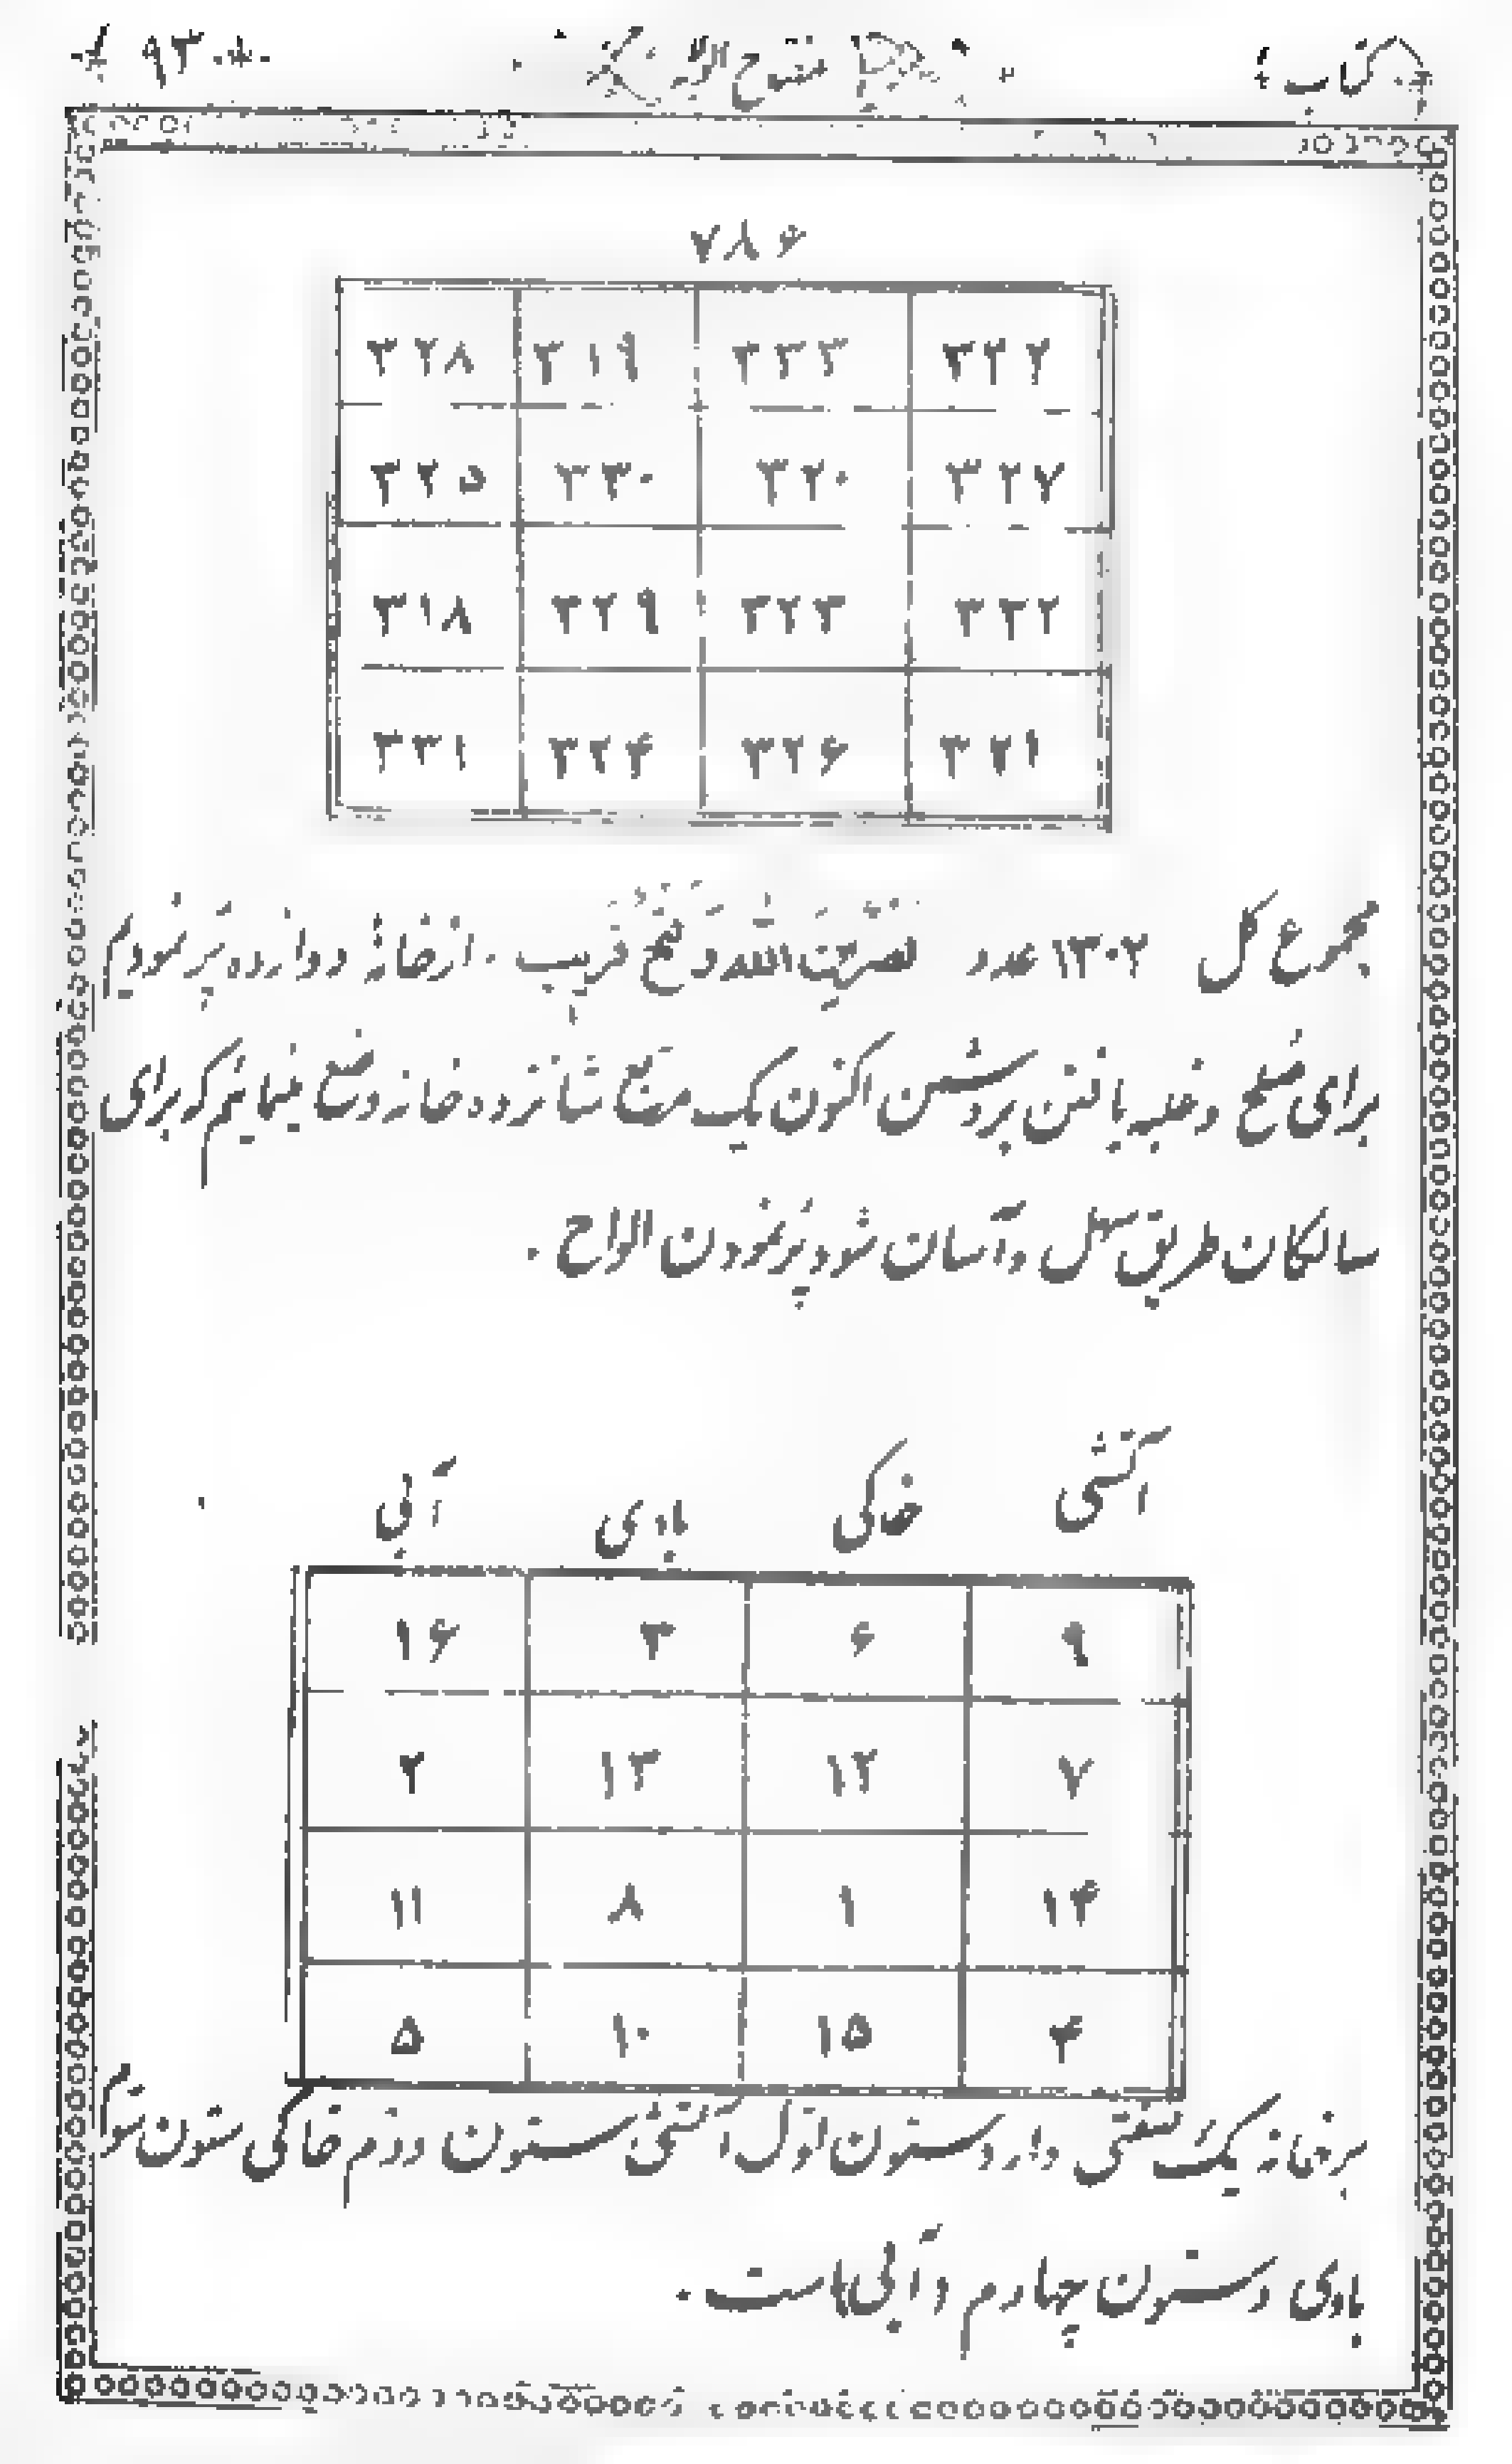 کتاب مفتوح الابـ ۹۳
۷۸۶
۳۲۸ ۳۱۹ ۳۳۳ ۳۲۲
۳۲۵ ۳۳۰ ۳۲۰ ۳۲۷
۳۱۸ ۳۲۹ ۳۲۳ ۳۳۲
۳۳۱ ۳۲۴ ۳۲۶ ۳۲۱
مجموع کل ۱۳۰۲ عدد نَصْرٌ مِنَ اللّٰهِ وَ فَتْحٌ قریب . ازخانهٔ دوازده پُر نمودیم
برای صلح و غلبه یافتن بردشمن اکنون یک مربّع شانزده خانه وضع مینمایئم که برای
سالکان طریق سهل و آسان شود پُرنمودن الواح .
آتشی خاکی بادی آبی
۱۶ ۳ ۶ ۹
۲ ۱۳ ۱۲ ۷
۱۱ ۸ ۱ ۱۴
۵ ۱۰ ۱۵ ۴
هرخانه یک صفتی دارد ستون اوّل آتشی ستون دوّم خاکی ستون سوّم
بادی و ستون چهارم و آبی است .